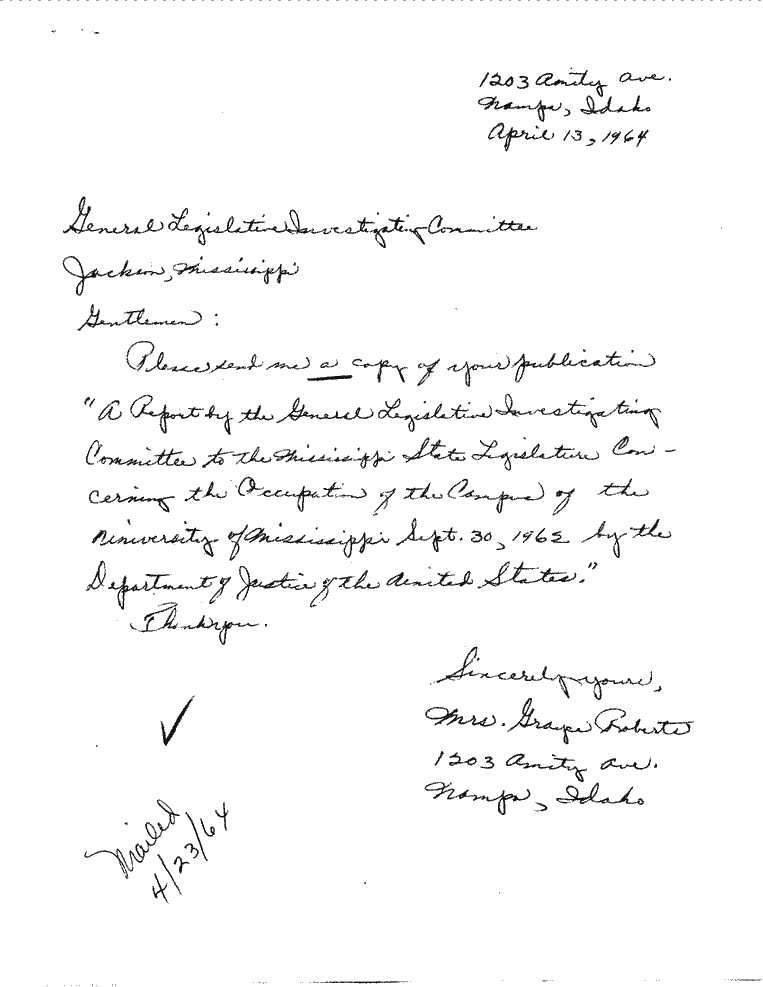 1203 Amity Ave.
Nampa, Idaho
April 13, 1964
General Legislative Investigating Committee
Jackson, Mississippi
Gentlemen:
Please send me a copy of your publication
"A Report by the General Legislative Investigating
Committee to the Mississippi State Legislature Con-
cerning the Occupation of the Campus of the
University of Mississippi Sept. 30, 1962 by the
Department of Justice of the United States."
Thank you.
Sincerely yours,
Mrs. Roberts
1203 Amity Ave.
Nampa, Idaho
✓
Mailed
4/23/64